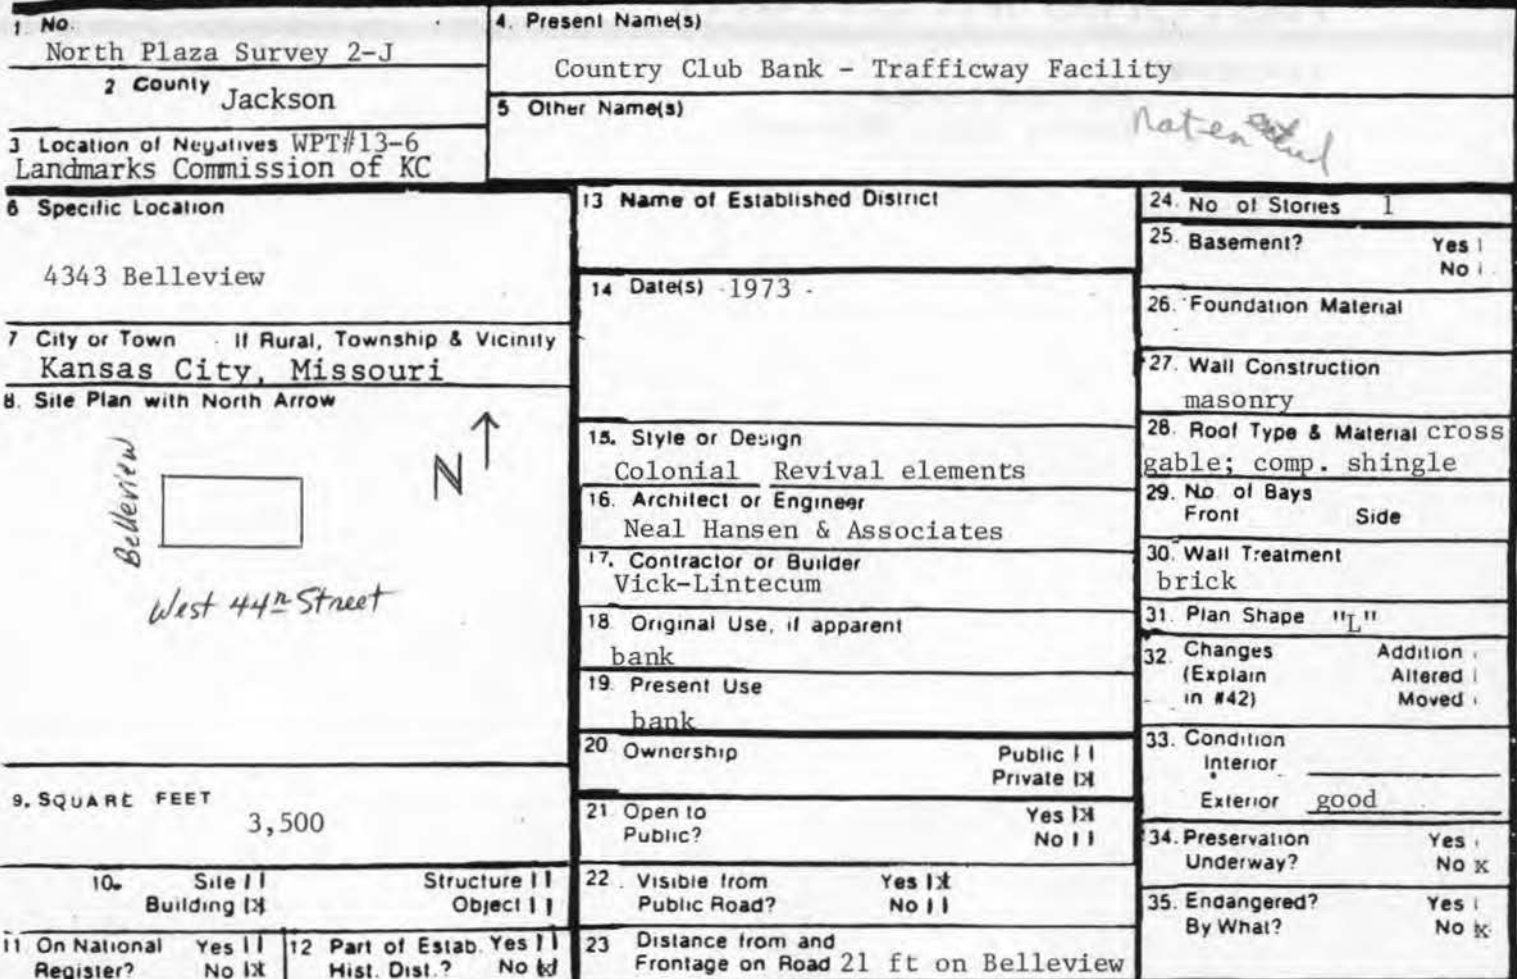 1. No.
North Plaza Survey 2-J
2 County Jackson
3 Location of Negatives WPT#13-6
Landmarks Commission of KC
4. Present Name(s)
Country Club Bank - Trafficway Facility
5 Other Name(s)
6 Specific Location
4343 Belleview
7 City or Town If Rural, Township & Vicinity
Kansas City, Missouri
8. Site Plan with North Arrow
N
Belleview
West 44th Street
9. SQUARE FEET
3,500
10. Site | | Structure | |
Building |X| Object | |
11 On National Yes | |
Register? No |X
12 Part of Estab. Yes | |
Hist. Dist.? No |x|
13 Name of Established District
14 Date(s) 1973
15. Style or Design
Colonial Revival elements
16. Architect or Engineer
Neal Hansen & Associates
17. Contractor or Builder
Vick-Lintecum
18. Original Use, if apparent
bank
19. Present Use
bank
20 Ownership Public | |
Private |X|
21 Open to Yes |X|
Public? No | |
22. Visible from Yes |X
Public Road? No | |
23 Distance from and
Frontage on Road 21 ft on Belleview
24. No of Stories 1
25. Basement? Yes |
No |
26. Foundation Material
27. Wall Construction
masonry
28. Roof Type & Material cross
gable; comp. shingle
29. No. of Bays
Front Side
30. Wall Treatment
brick
31. Plan Shape "L"
32. Changes Addition
(Explain Altered |
in #42) Moved
33. Condition
Interior
Exterior good
34. Preservation Yes
Underway? No X
35. Endangered? Yes |
By What? No X